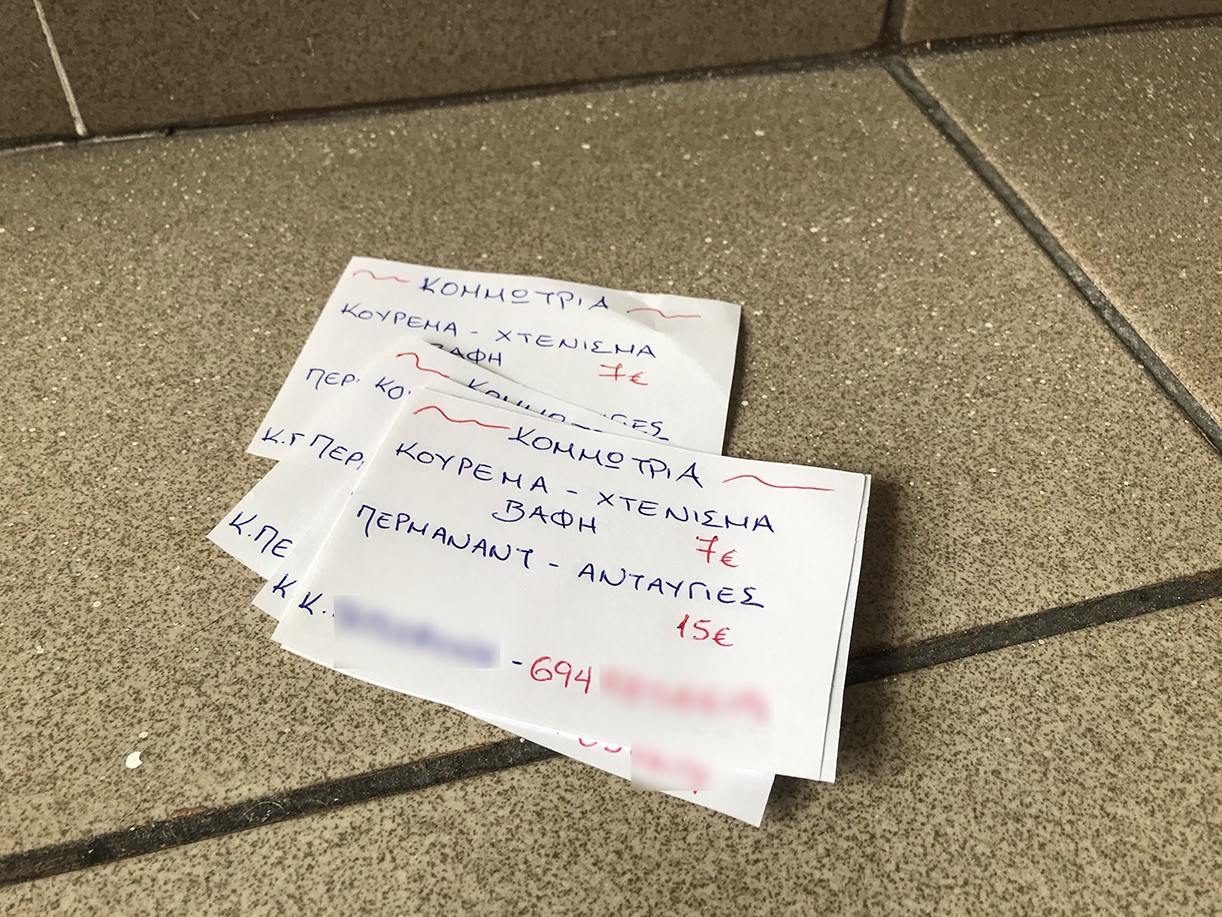 ΚΟΜΜΩΤΡΙΑ
ΚΟΥΡΕΜΑ - ΧΤΕΝΙΣΜΑ
ΒΑΦΗ 7€
ΠΕΡ
Κ.
ΚΟΜΜΩ
ΚΟ
ΠΕΡ
Κ.ΠΕ
Κ
ΚΟΜΜΩΤΡΙΑ
ΚΟΥΡΕΜΑ - ΧΤΕΝΙΣΜΑ
ΒΑΦΗ 7€
ΠΕΡΜΑΝΑΝΤ - ΑΝΤΑΥΓΙΕΣ
15€
Κ. - 694